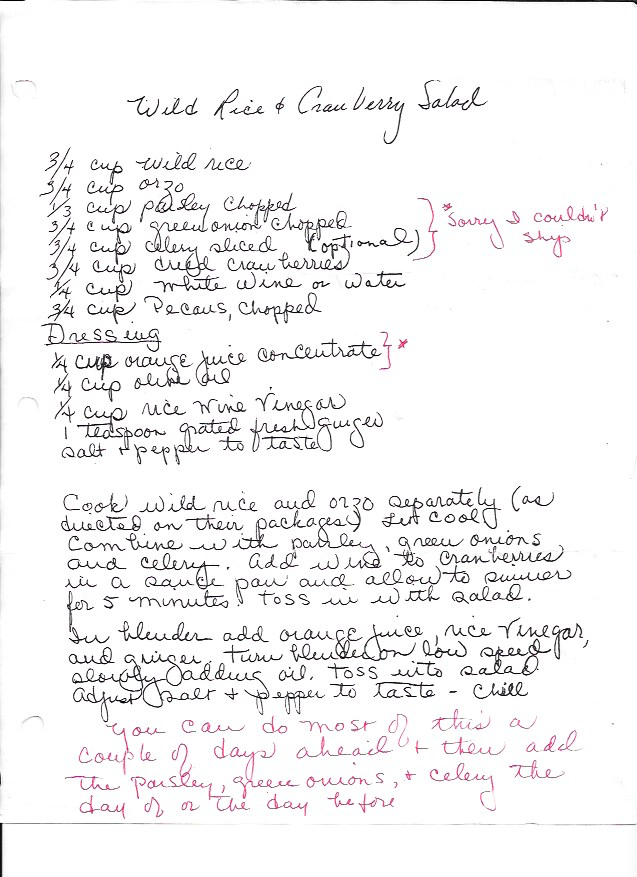 Wild Rice & Cranberry Salad
3/4 cup wild rice
3/4 cup orzo
1/3 cup parsley chopped
3/4 cup green onion chopped
3/4 cup celery sliced (optional)
* Sorry I couldn't
ship
3/4 cup dried cranberries
1/4 cup white wine or water
3/4 cup Pecans, chopped
Dressing
1/4 cup orange juice concentrate *
1/4 cup olive oil
1/4 cup rice wine vinegar
1 teaspoon grated fresh ginger
salt + pepper to taste
Cook wild rice and orzo separately (as
directed on their packages) Let cool
Combine with parsley, green onions
and celery. Add wine to cranberries
in a sauce pan and allow to simmer
for 5 minutes. Toss in with salad.
In blender add orange juice, rice vinegar,
and ginger. Turn blender on low speed
slowly adding oil. Toss into salad
Adjust salt + pepper to taste - Chill
You can do most of this a
couple of days ahead + then add
the parsley, green onions, + celery the
day of or the day before